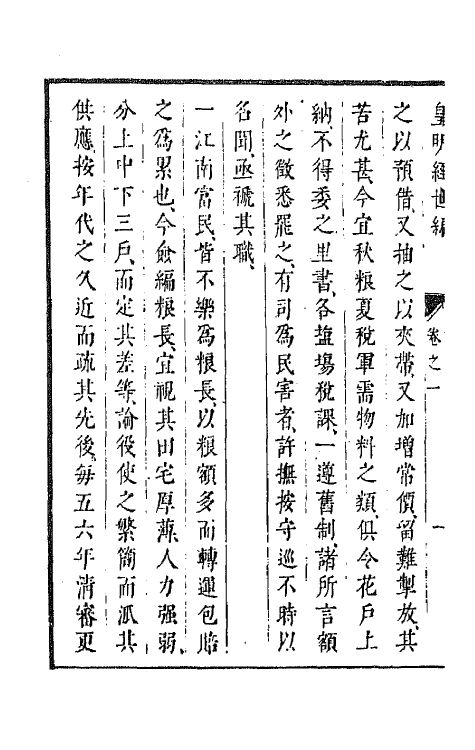 皇明經世編
卷之一
一
之以預借、又抽之以夾帶、又加增常價、留難掣放、其
苦尤甚、今宜秋粮夏稅軍需物料之類、俱令花戶上
納、不得委之里書、各塩場稅課、一遵舊制、諸所言額
外之徵悉罷之、有司為民害者、許撫按守巡不時以
名聞、亟褫其職、
一江南富民、皆不樂為粮長、以粮額多而轉運包賠
之為累也、今僉編粮長、宜視其田宅厚薄、人力强弱、
分上中下三戶、而定其差等、論役使之繁簡而派其
供應、按年代之久近而疏其先後、每五六年清審更